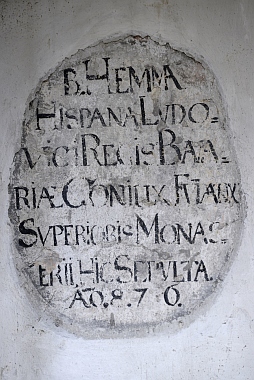 B. HEMMA
HISPANA LVDO=
VICI REGIS BAIA=
RIÆ CONIUX
SVPERIORIS MONAS=
TERII HIC SEPVLTA.
AÖ. 8. 7 6.